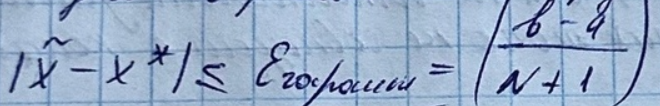 |x̃ - x*| ≤ Eгарант = (b - a / N + 1)